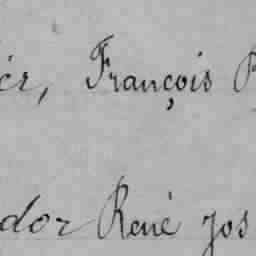 ier, François
dor René Jos